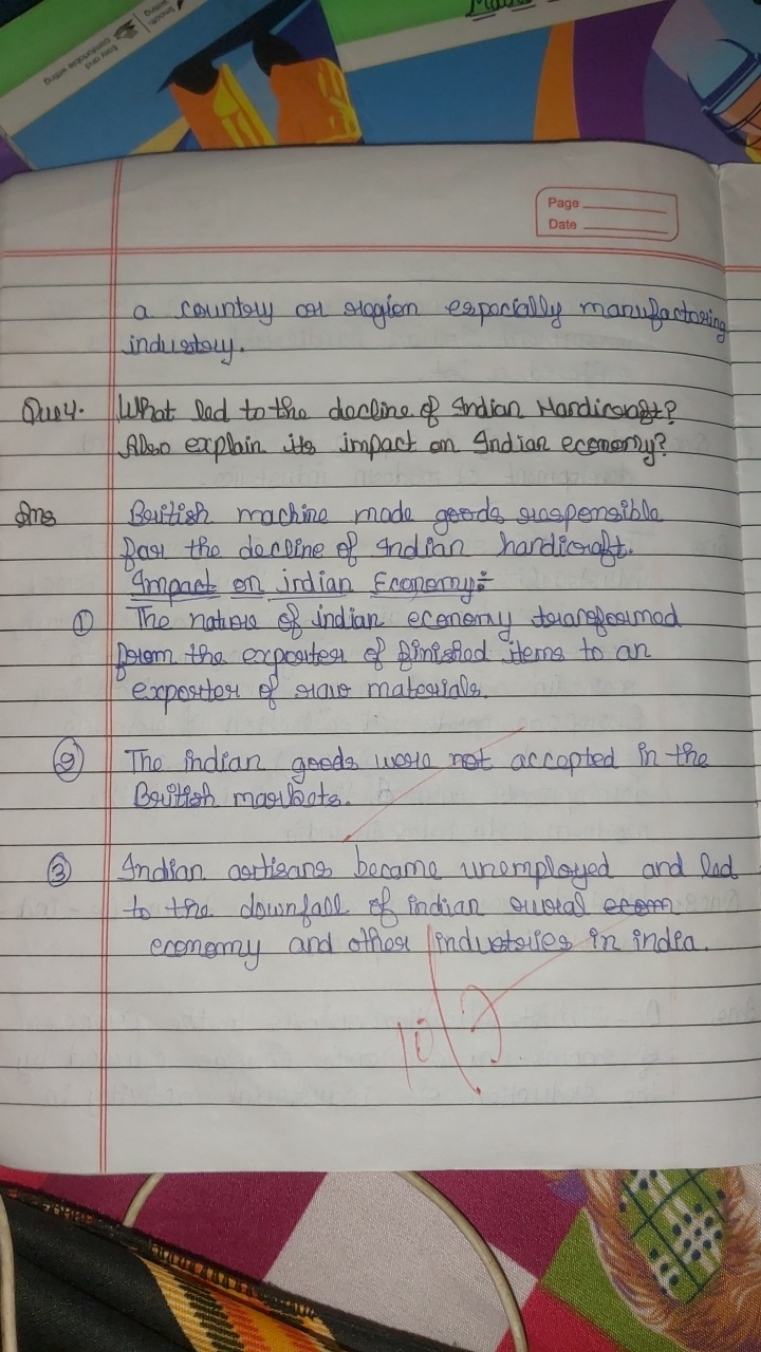 Smooth writing
Easy and comfortable writing
Page
Date
a country or region especially manufactoring
industry.
Que4. What led to the decline of Indian Handicraft?
Also explain its impact on Indian economy?
Ans British machine made goods responsible
for the decline of Indian handicraft.
Impact on indian Economy:-
① The nature of indian economy transformed
from the exporter of finished items to an
exporter of raw materials.
② The indian goods were not accepted in the
British markets.
③ Indian artisans became unemployed and led
to the downfall of indian rural econ
economy and other industries in india.